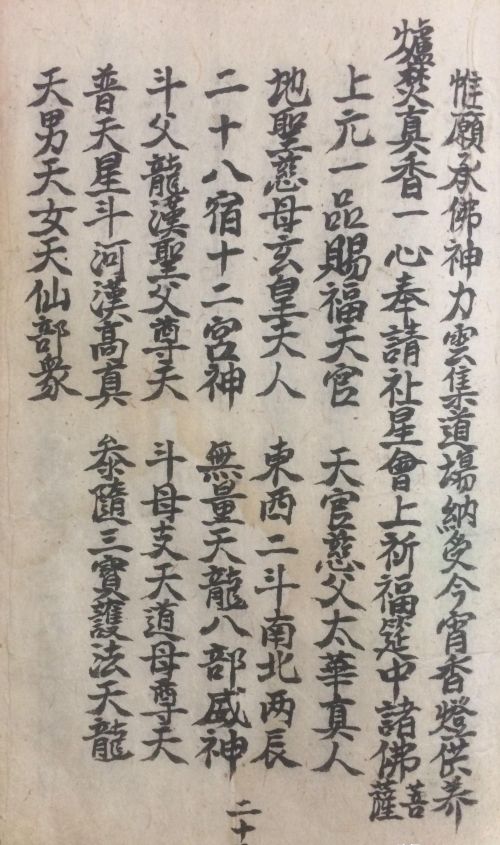 惟願承佛神力雲集道場納受今宵香燈供养
爐焚真香一心奉請祉星會上祈福筵中諸佛菩薩
上元一品賜福天官　天官慈父太華真人
地聖慈母玄皇夫人　東西二斗南北两辰
二十八宿十二宮神　無量天龍八部威神
斗父龍漢聖父尊天　斗母支天道母尊天
普天星斗河漢髙真　叅隨三寳護法天龍
天男天女天仙部衆
二十